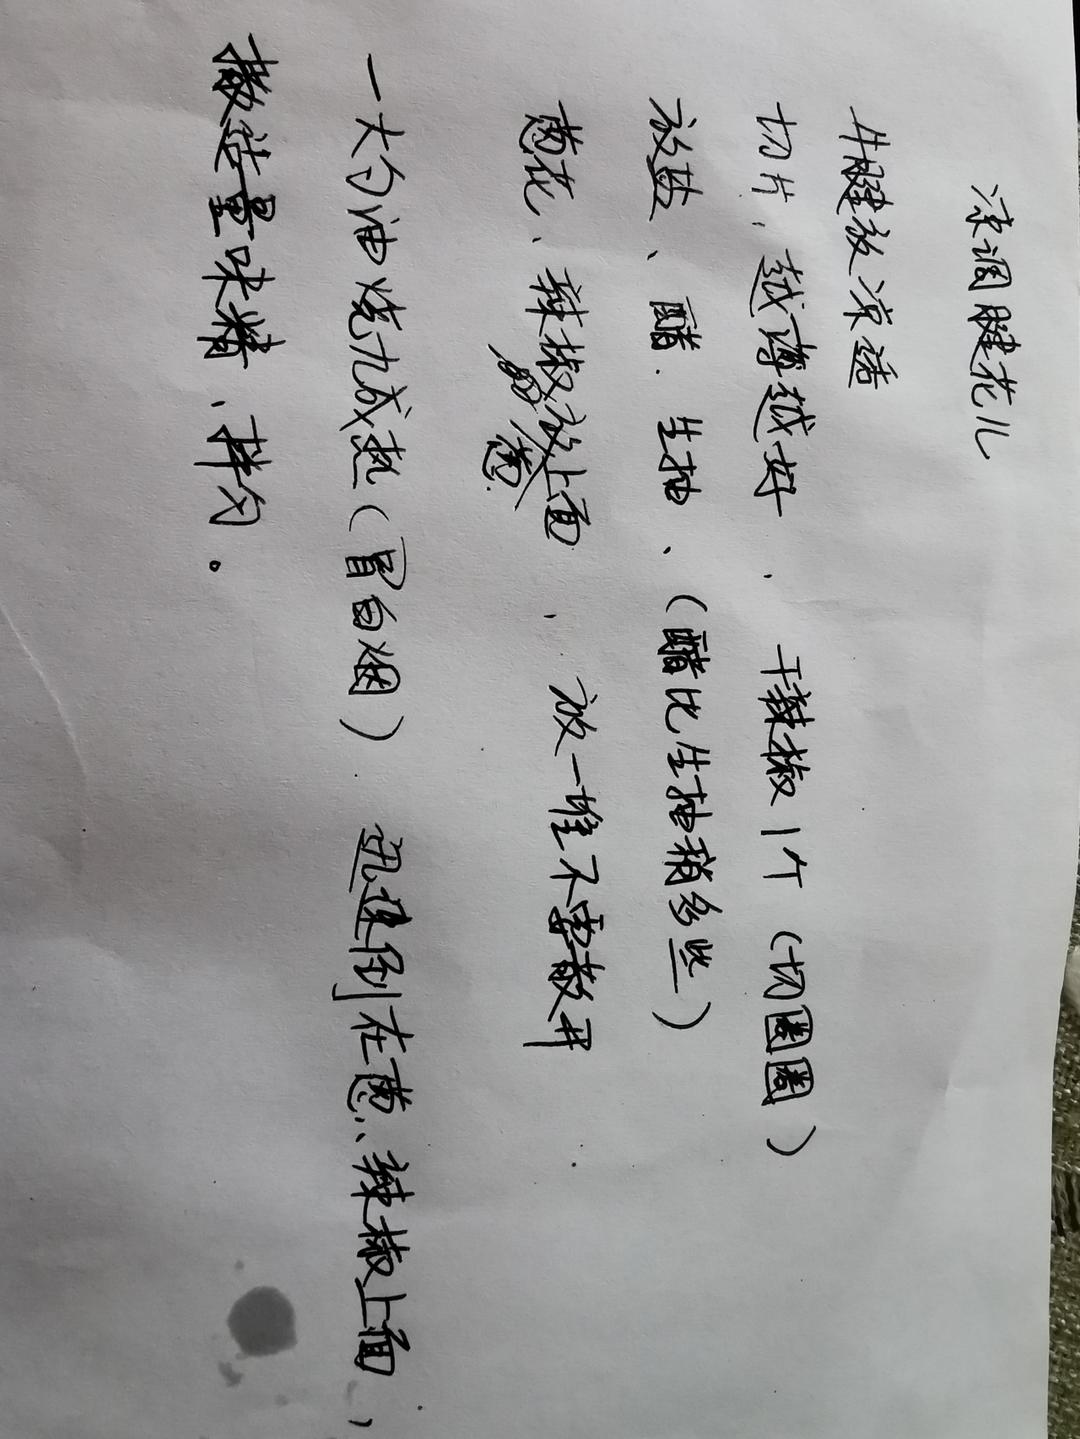 凉调腱花儿
牛腱放凉透
切片，越薄越好，干辣椒1个（切圈圈）
放盐、醋、生抽、（醋比生抽稍多些）
葱花、辣椒放上面，放一堆不要散开
葱
一大勺油烧九成热（冒白烟）迅速倒在葱、辣椒上面，
撒适量味精、拌匀。